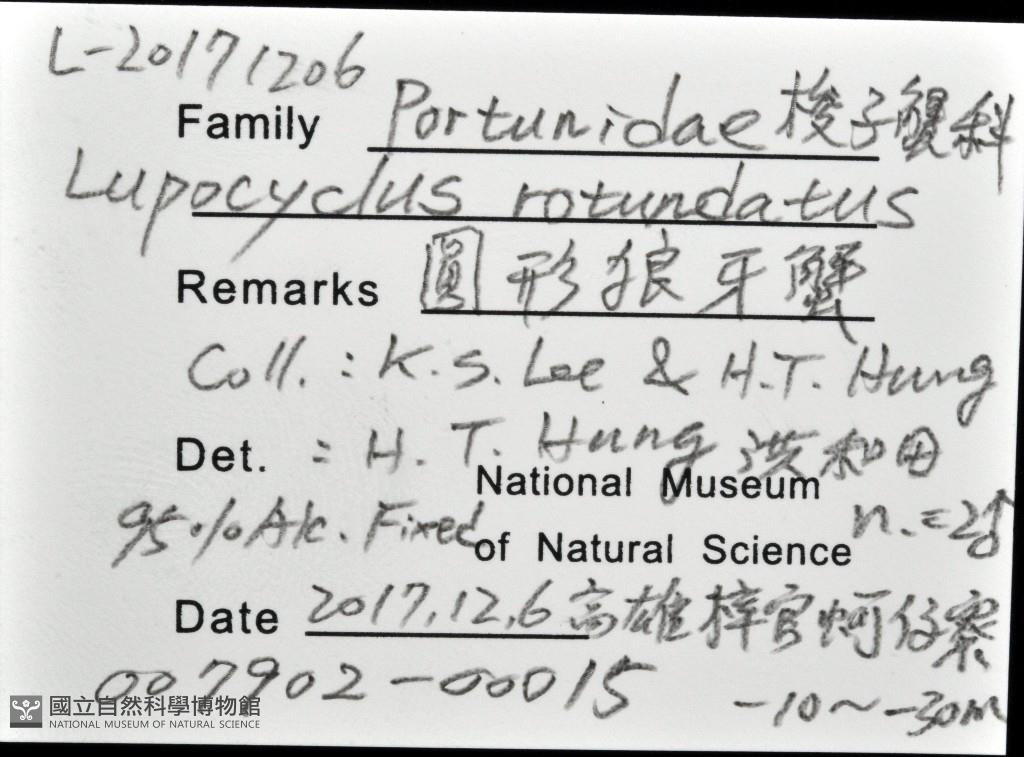 L-20171206
Family Portunidae 梭子蟹科
Lupocyclus rotundatus
Remarks 圓形狼牙蟹
Coll. : K.S. Lee & H.T. Hung
Det. : H. T. Hung 洪和田
National Museum
95%Alc. Fixed n.=2♂
of Natural Science
Date 2017.12.6 高雄梓官蚵仔寮
007902-00015
-10~-30m
國立自然科學博物館
NATIONAL MUSEUM OF NATURAL SCIENCE